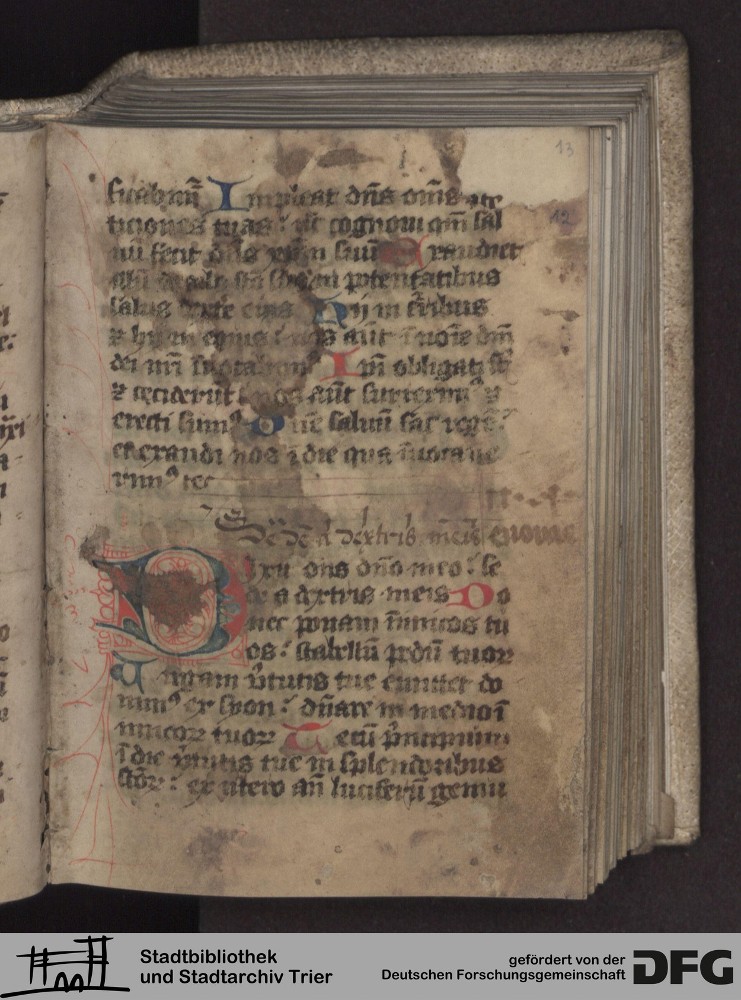 13
ficabimur Impleat dns oms pe
ticiones tuas: nc cognoui qm sal
uu fecit dns xpm suu Exaudiet
illu de celo sco suo in potentatibus
salus dextre eius Hij in curibus
et hij in equis: nos aut i noie dni
dei nri inuocabimus Ipi obligati st
et ceciderut: nos aut surreximus et
erecti sumus Dne saluu fac rege:
et exaudi nos i die qua inuocaue
rimus te
Sede a dextris meis euouae
Dixit dns dno meo: se
de a dextris meis Do
nec ponam inimicos tu
os: scabellu pedu tuor
Uirgam virtutis tue emittet do
minus ex syon: dnare in medio i
nimicor tuor Tecu principium
i die virtutis tue in splendoribus
scor: ex utero an luciferu genui
12
Stadtbibliothek
und Stadtarchiv Trier
gefördert von der
Deutschen Forschungsgemeinschaft
DFG